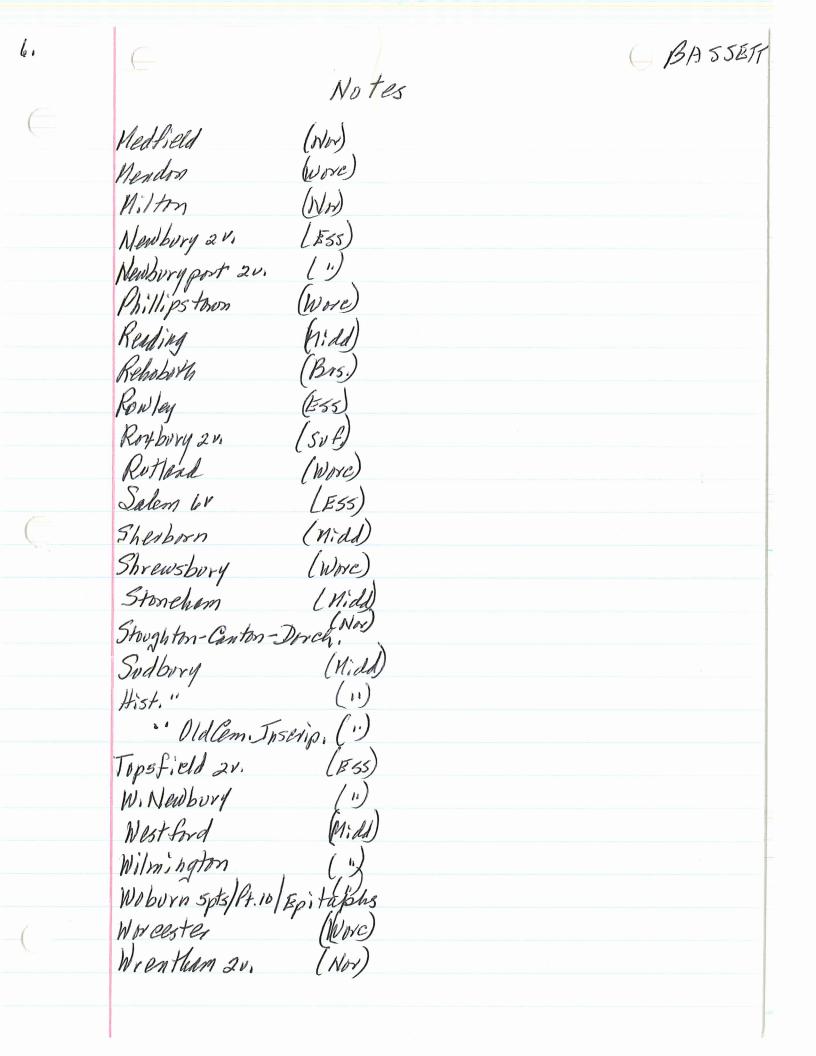 6. BASSETT
Notes
Medfield (Nor)
Mendon (Worc)
Milton (Nor)
Newbury 2v. (Ess)
Newburyport 2v. (")
Phillipstown (Worc)
Reading (Midd)
Rehoboth (Brs.)
Rowley (Ess)
Roxbury 2v. (Suf)
Rutland (Worc)
Salem 6v (Ess)
Sherborn (Midd)
Shrewsbury (Worc)
Stoneham (Midd)
Stoughton-Canton-Dorch. (Nor)
Sudbury (Midd)
Hist. " (")
" Old Cem. Inscrip. (")
Topsfield 2v. (Ess)
W. Newbury (")
Westford (Midd)
Wilmington (")
Woburn 5pts/Pt.10/Epitaphs (")
Worcester (Worc)
Wrentham 2v. (Nor)